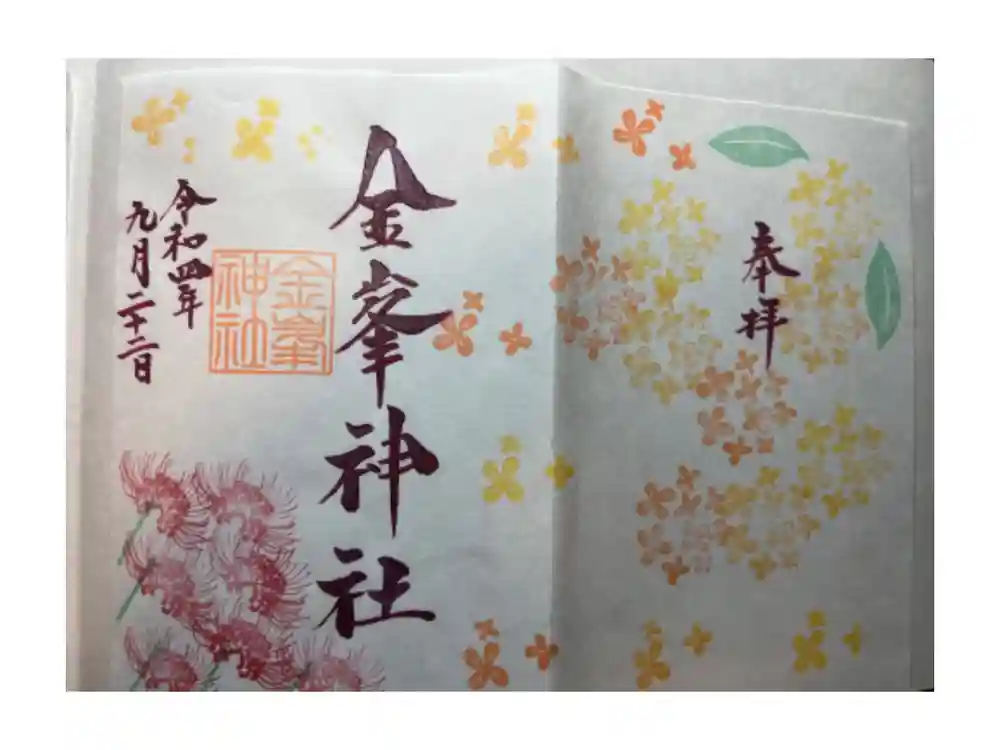 奉拝
金峯神社
金峯
神社
令和四年
九月二十二日